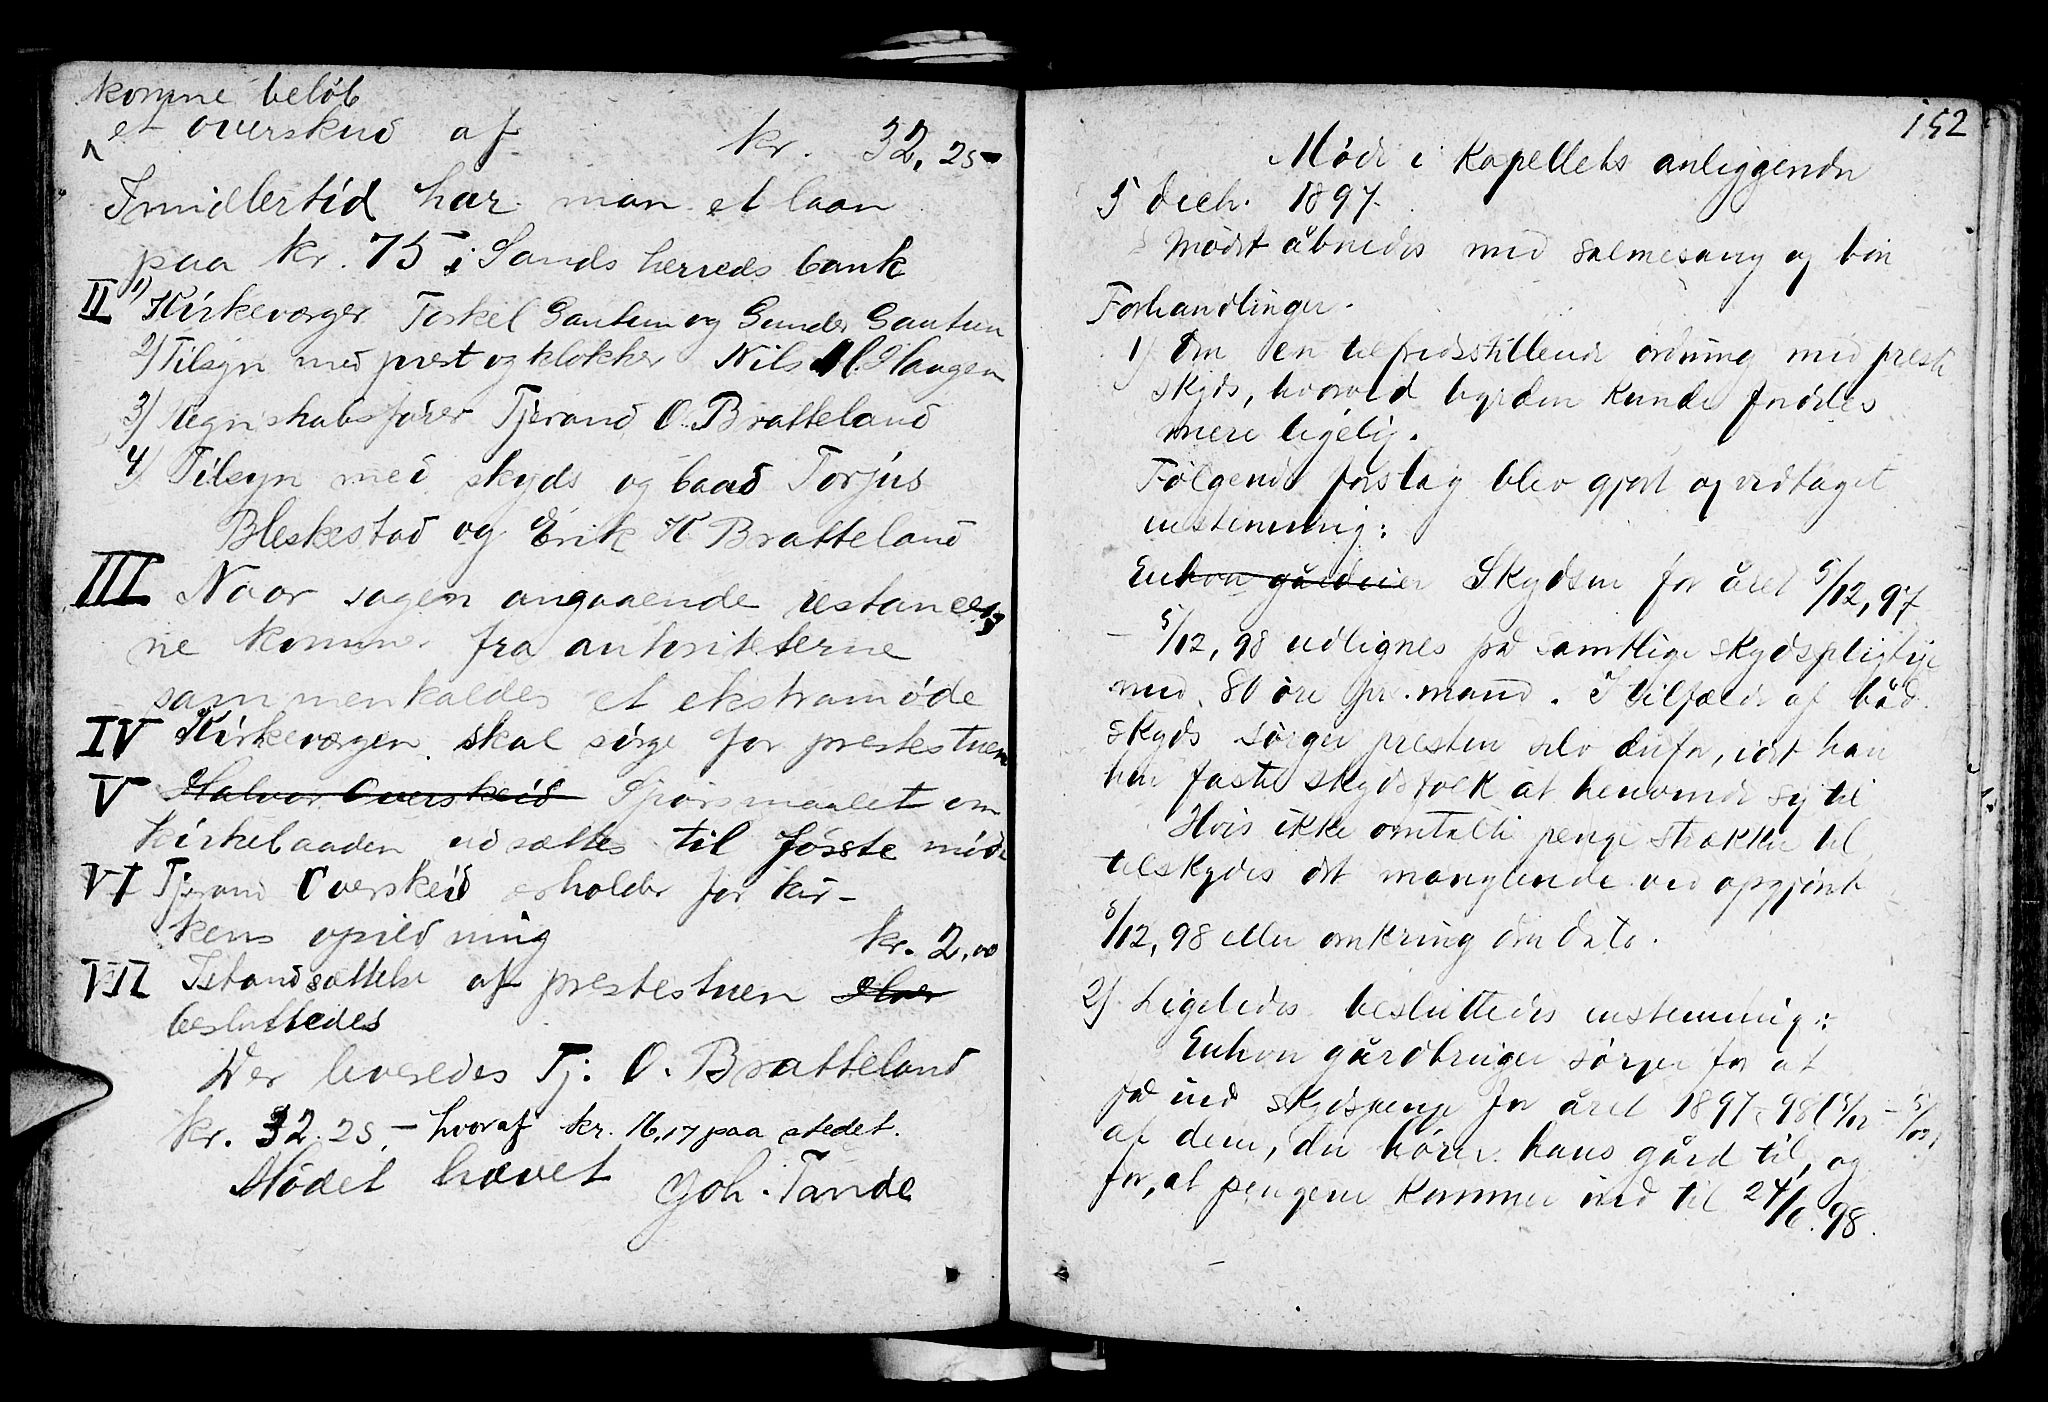 komme beløb
et overskud af kr. 32,25
Imidlertid har man et laan
paa kr. 75 i Sands herreds bank
II 1) Kirkeværger Torkel Gautun og Gunder Gautun
2) Tilsyn med prest og klokker Nils M. Haugen
3) Regnskabsfører Tjerand O. Bratteland
4) Tilsyn med skyds og baad Torjus
Bleskestad og Erik K Bratteland
III Naar sagen angaaende restancer
ne kommer fra autoriteterne
sammenkaldes et ekstramøde
IV Kirkeværgen skal sørge for prestestuen
V Halvor Overskeid Spørsmaalet om
kirkebaaden udsættes til første møde
VI Tjerand Overskeid erholder for kir-
kens opildning kr. 2,00
VII Istandsættelse af prestestuen
besluttedes
Der leveredes Tj. O. Bratteland
kr. 32.25 - hvoraf kr. 16,17 paa stedet.
Mødet hævet Joh. Tande
152
Møde i Kapellets anliggender
5 decb. 1897.
Mødet åbnedes med salmesang og bøn
Forhandlinger.
1) Om en tilfredsstillende ordning med preste
skyds, hvorved byrden kunde fordeles
mere ligelig.
Følgende forslag blev gjort og vedtaget
enstemmig:
Enhver gårdeier Skydsen for året 5/12, 97
- 5/12, 98 udlignes på samtlige skydspligtige
med 80 øre pr. mand. I tilfælde af båd
skyds sørger presten selv derfor, idet han
har faste skydsfolk at henvende sig til
Hvis ikke omtalte penge strækker til,
tilskydes det manglende ved opgjøret
5/12, 98 eller omkring den dato.
2) Ligeledes besluttedes enstemmig:
Enhver gårdbruger sørger for at
få ind skydspenge for året 1897-98 (5/12 - 5/12)
af dem, der hører hans gård til, og
for, at pengene kommer ind til 24/6. 98.